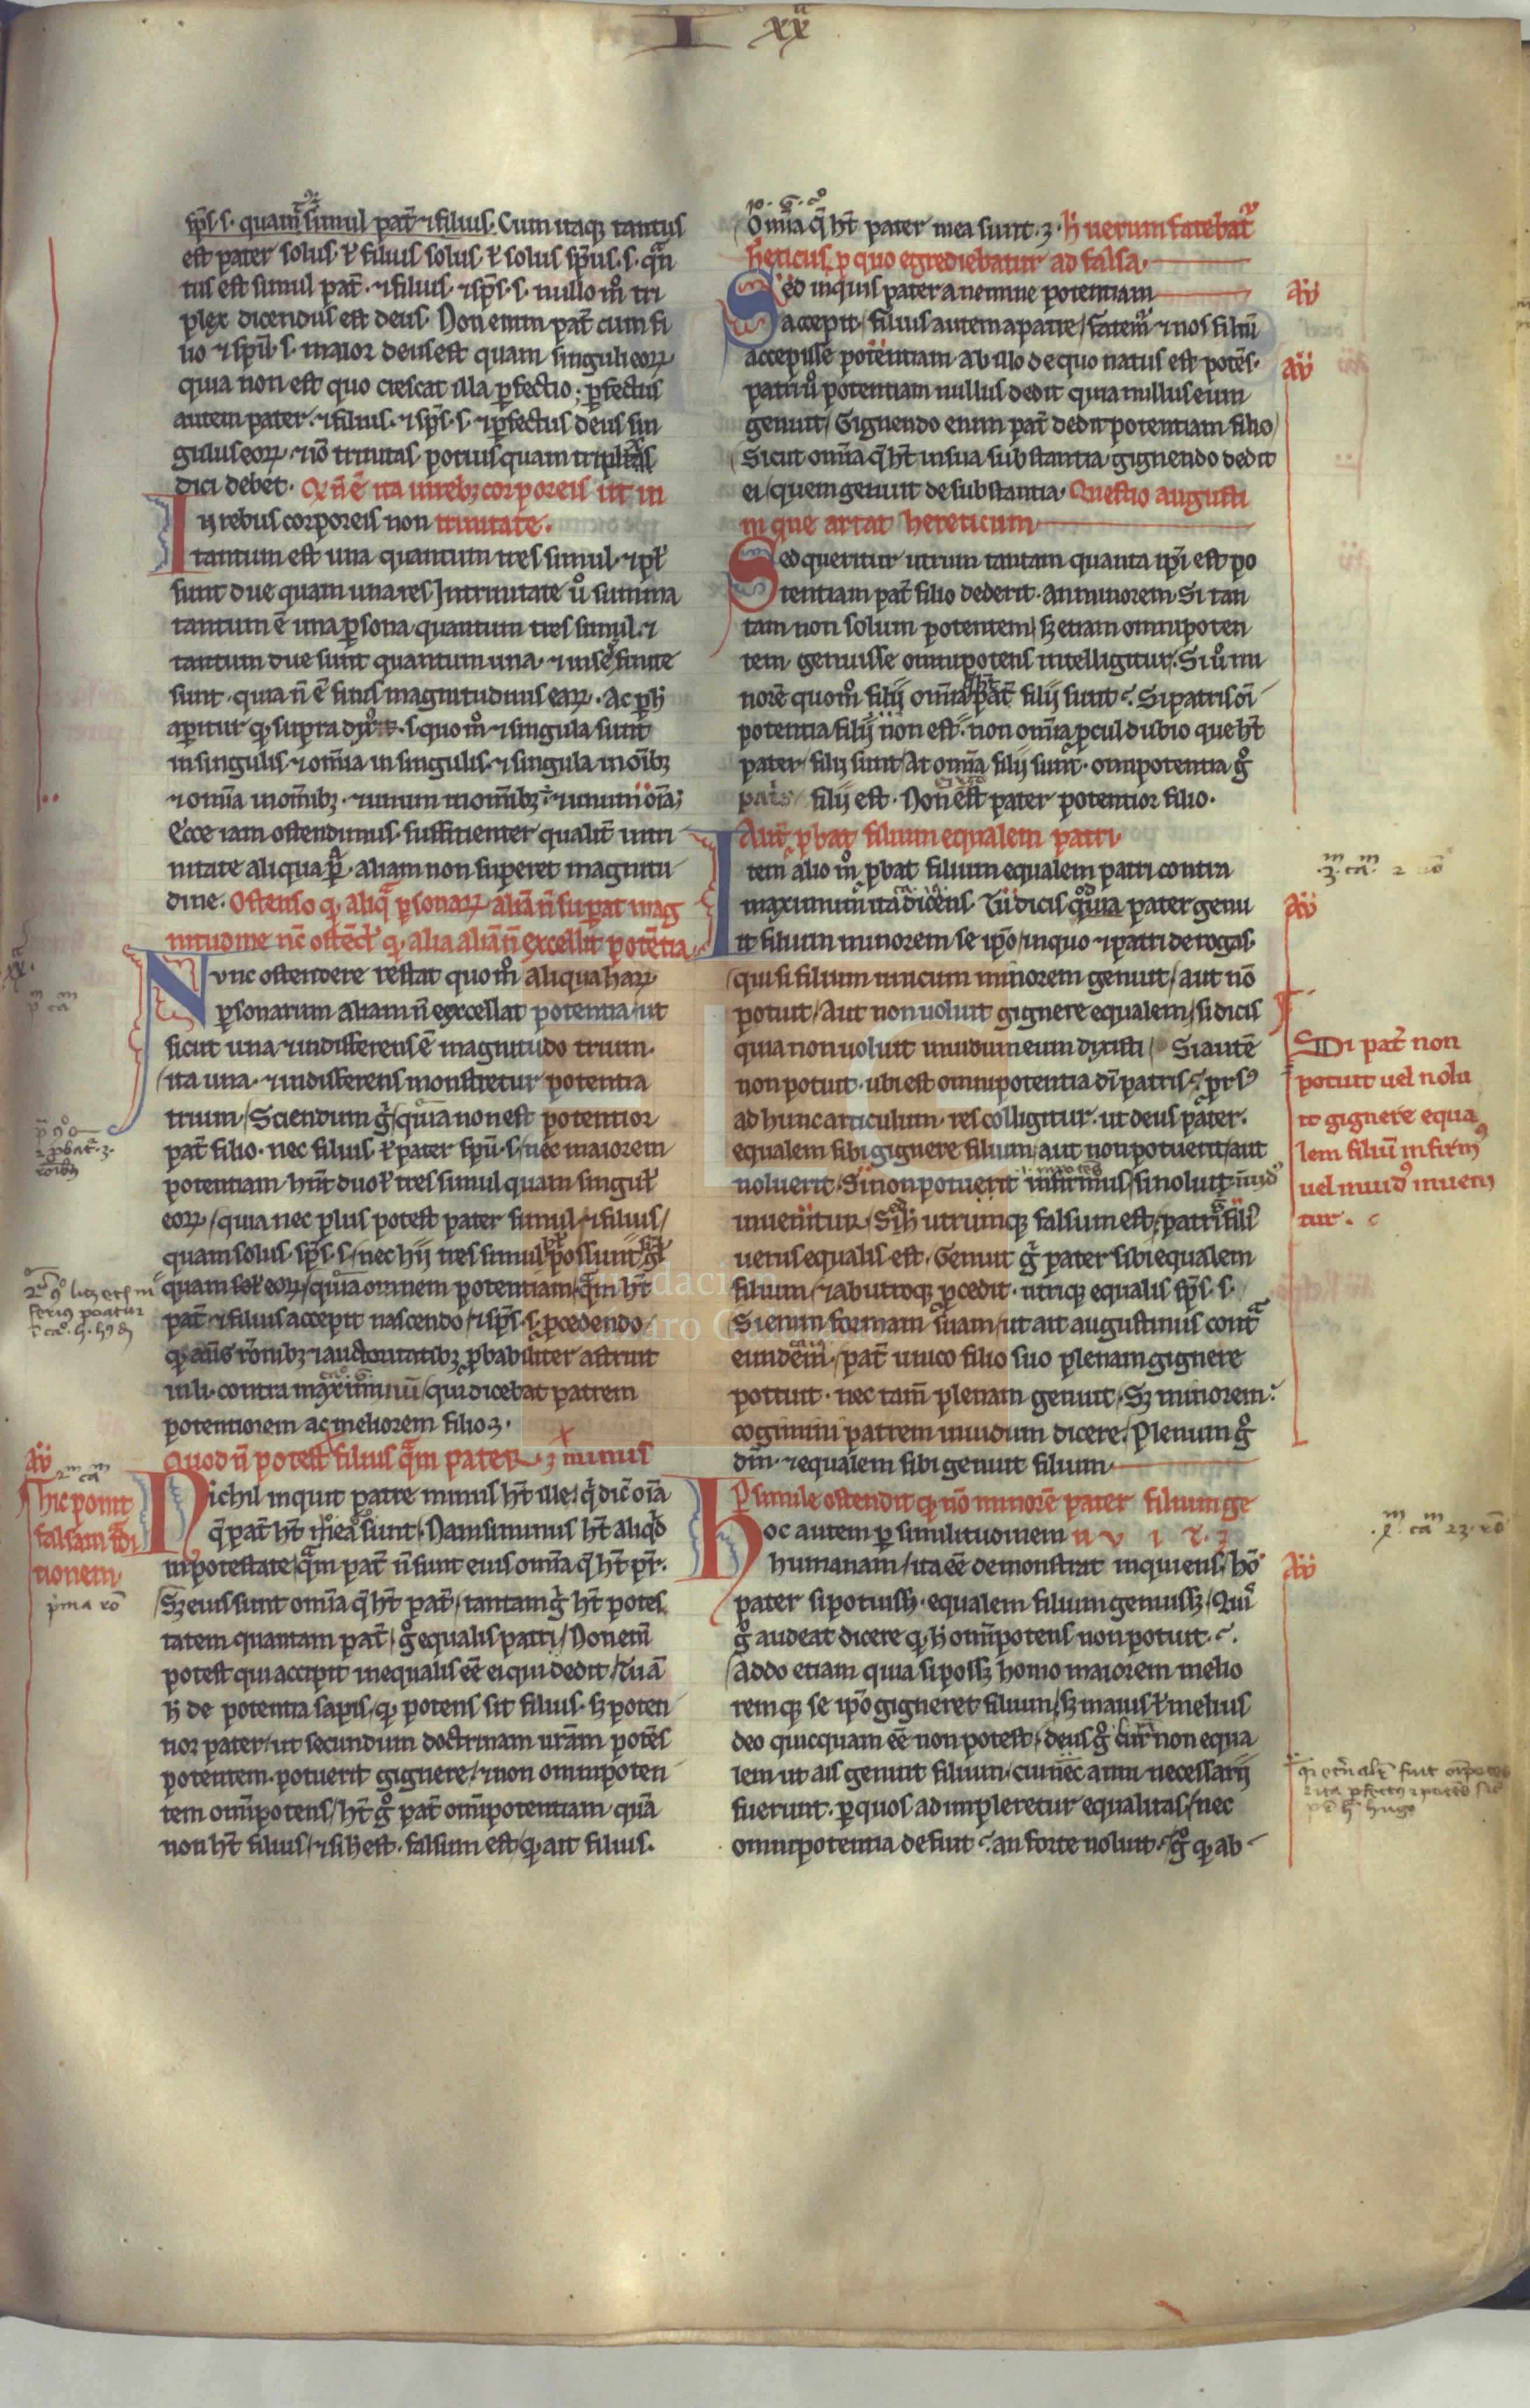 I xx
sp̄s .s. quam simul pat̄ ⁊ filius. Cum itaq; tantus
est pater solus. ł filius solus. ł solus sp̄us .s. qͣn
tus est simul pat̄. ⁊ filius. ⁊ sp̄s .s. nullo m̊ tri
plex dicendus est deus. Non enim pat̄ cum fi
lio ⁊ sp̄u .s. maior deus est quam singuli eoꝝ
quia non est quo crescat illa ꝑfectio; ꝑfectus
autem pater. ⁊ filius. ⁊ sp̄s .s. ⁊ ꝑfectus deus sin
gulus eoꝝ. ⁊ nō trinitas potius quam triplex
dici debet. Q n̄ ē ita in rebꝫ corporeis ut in
ij rebus corporeis non trinitate.
tantum est una quantum tres simul. ⁊ pl̄
sunt due quam una res In trinitate ů summa
tantum ē una ꝑsona quantum tres simul. ⁊
tantum due sunt quantum una. ⁊ in se īfinite
sunt. quia n̄ ē finis magnitudinis earꝝ. Ac ꝑ h̄
aꝑitur ꝙ supra dixit. s. quom̊ ⁊ singula sunt
in singulis. ⁊ om̄ia in singulis. ⁊ singula in oīb;
⁊ om̄ia in om̄ib;. ⁊ unum in om̄ib;. ⁊ unum oīa;
Ecce iam ostendimus. sufficienter qualit̄ in tri
nitate aliqua ꝑ. aliam non superet magnitu
dine. Ostenso ꝙ aliqͣ ꝑsonaꝝ aliā n̄ suꝑat mag
nitudine nc̄ ostēdit ꝙ alia aliā n̄ excellit potētia
Nunc ostendere restat quom̊ aliqua haꝝ
ꝑsonarum aliam n̄ excellat potentia. ut
sicut una ⁊ indifferens ē magnitudo trium.
ita una. ⁊ indifferens monstretur potentia
trium. Sciendum g̊ quia non est potentior
pat̄ filio. nec filius. ł pater sp̄u .s. nec maiorem
potentiam hn̄t duo ł tres simul quam singuł
eoꝝ. quia nec plus potest pater simul ⁊ filius.
quam solus. sp̄s .s. nec hij tres simul pl̄ possunt
quam eoꝝ. quia omnem potentiam qͣm h̄t
pat̄ ⁊ filius accepit nascendo. ⁊ sp̄s .s. ꝓcedendo.
ꝙ aūs rōnib; ⁊ auctoritatib; ꝓbabiliter astruit
in li. contra maximinū. qui dicebat patrem
potentiorem ac meliorem filio.
Quod n̄ potest filius qͣm pater minus
Nichil inquit patre minus h̄t ille. q̇ dic̄ oīa
q̄ pat̄ h̄t mea sunt. Nam si minus h̄t aliqͥd
in potestate qͣm pat̄ n̄ sunt eius om̄ia q̄ h̄t pr̄.
Sꝫ eius sunt om̄ia q̄ h̄t pat̄. tantam g̊ h̄t potes
tatem quantam pat̄. g̊ equalis patri. Non em̄
potest qui accepit inequalis eē ei qui dedit. Tu ā
h̄ de potentia sapis. ꝙ potens sit filius. sꝫ poten
tior pater. ut secundum doctrinam urām potēs
potentem potuerit gignere. ⁊ non omnipoten
tem om̄ipotens. h̄t g̊ pat̄ om̄ipotentiam quā
non h̄t filius. ⁊ si h̄ est. falsum est ꝙ ait filius.
Om̄ia q̄ h̄t pater mea sunt. h̄ uerum fatebat̄
hericus ꝑ quo egrediebatur ad falsa.
Sed inquis pater a nemine potentiam
accepit. filius autem a patre. fatem̄ ⁊ nos filiū
accepisse potentiam ab illo de quo natus est potēs.
patri ů potentiam nullus dedit quia nullus eum
genuit. Gignendo enim pat̄ dedit potentiam filio
Sicut om̄ia q̄ h̄t in sua substantia gignendo dedit
ei quem genuit de substantia. Questio augusti
in que artat hereticum
Sed queritur utrum tantam quanta ip̄i est po
tentiam pat̄ filio dederit. an minorem. Si tan
tam non solum potentem sꝫ etiam omnipoten
tem genuisse omnipotens intelligitur. Si ů mi
norē quom̊ filij om̄ia pat̄ filij sunt. Si patris oī
potentia filij non est. non om̄ia ꝓcul dubio que h̄t
pater filij sunt. At om̄ia filij sunt. om̄ipotentia g̊
pats filij est. Non est pater potentior filio.
Aliť ꝓbat filium equalem patri.
Item alio m̊ ꝓbat filium equalem patri contra
maximinum ita dicens. Tu dicis quia pater genu
it filium minorem se ip̄o. in quo ⁊ patri derogas.
qui si filium unicum minorem genuit. aut nō
potuit. Aut non uoluit gignere equalem. si dicis
quia non uoluit inuidum eum dixisti. Si autē
non potuit. ubi est omnipotentia dī patris.
ad hunc articulum. res colligitur. ut deus pater.
equalem sibi gignere filium. aut non potuerit. aut
noluerit. Si non potuerit infirmus. si noluit inuidꝰ
inuenitur. Sꝫ h̄ utrumq; falsum est. patri g̊ filiꝰ
uerus equalis est. Genuit g̊ pater sibi equalem
filium. ⁊ ab utroq; ꝓcedit. utriq; equalis sp̄s .s.
Si enim formam suam. ut ait augustinus contͣ
eundem. pat̄ unico filio suo plenam gignere
potuit. nec tam̄ plenam genuit. Sꝫ minorem:
cogimini patrem inuidum dicere. Plenum g̊
dm̄. ⁊ equalem sibi genuit filium.
P simile ostendit ꝙ nō minorē pater filium ge
Hoc autem ꝑ similitudinem n v i t.
humanam ita eē demonstrat inquiens. hō
pater si potuissꝫ. equalem filium genuissꝫ. Quis
g̊ audeat dicere ꝙ h̄ om̄ipotens non potuit.
Addo etiam quia si possꝫ homo maiorem melio
remq; se ip̄o gigneret filium. sꝫ maius ł melius
deo quicquam eē non potest. deus g̊ cur non equa
lem ut ais genuit filium. cui nec anni necessarij
fuerunt. ꝑ quos adimpleretur equalitas. nec
omnipotentia defuit. an forte noluit. g̊ ꝙ ab
hic ponit
falsam
tionem.
p̄ma rō
Si pat̄ non
potuit uel nolu
it gignere equa
lem filiū infirmꝰ
uel inuidꝰ inueni
tur.